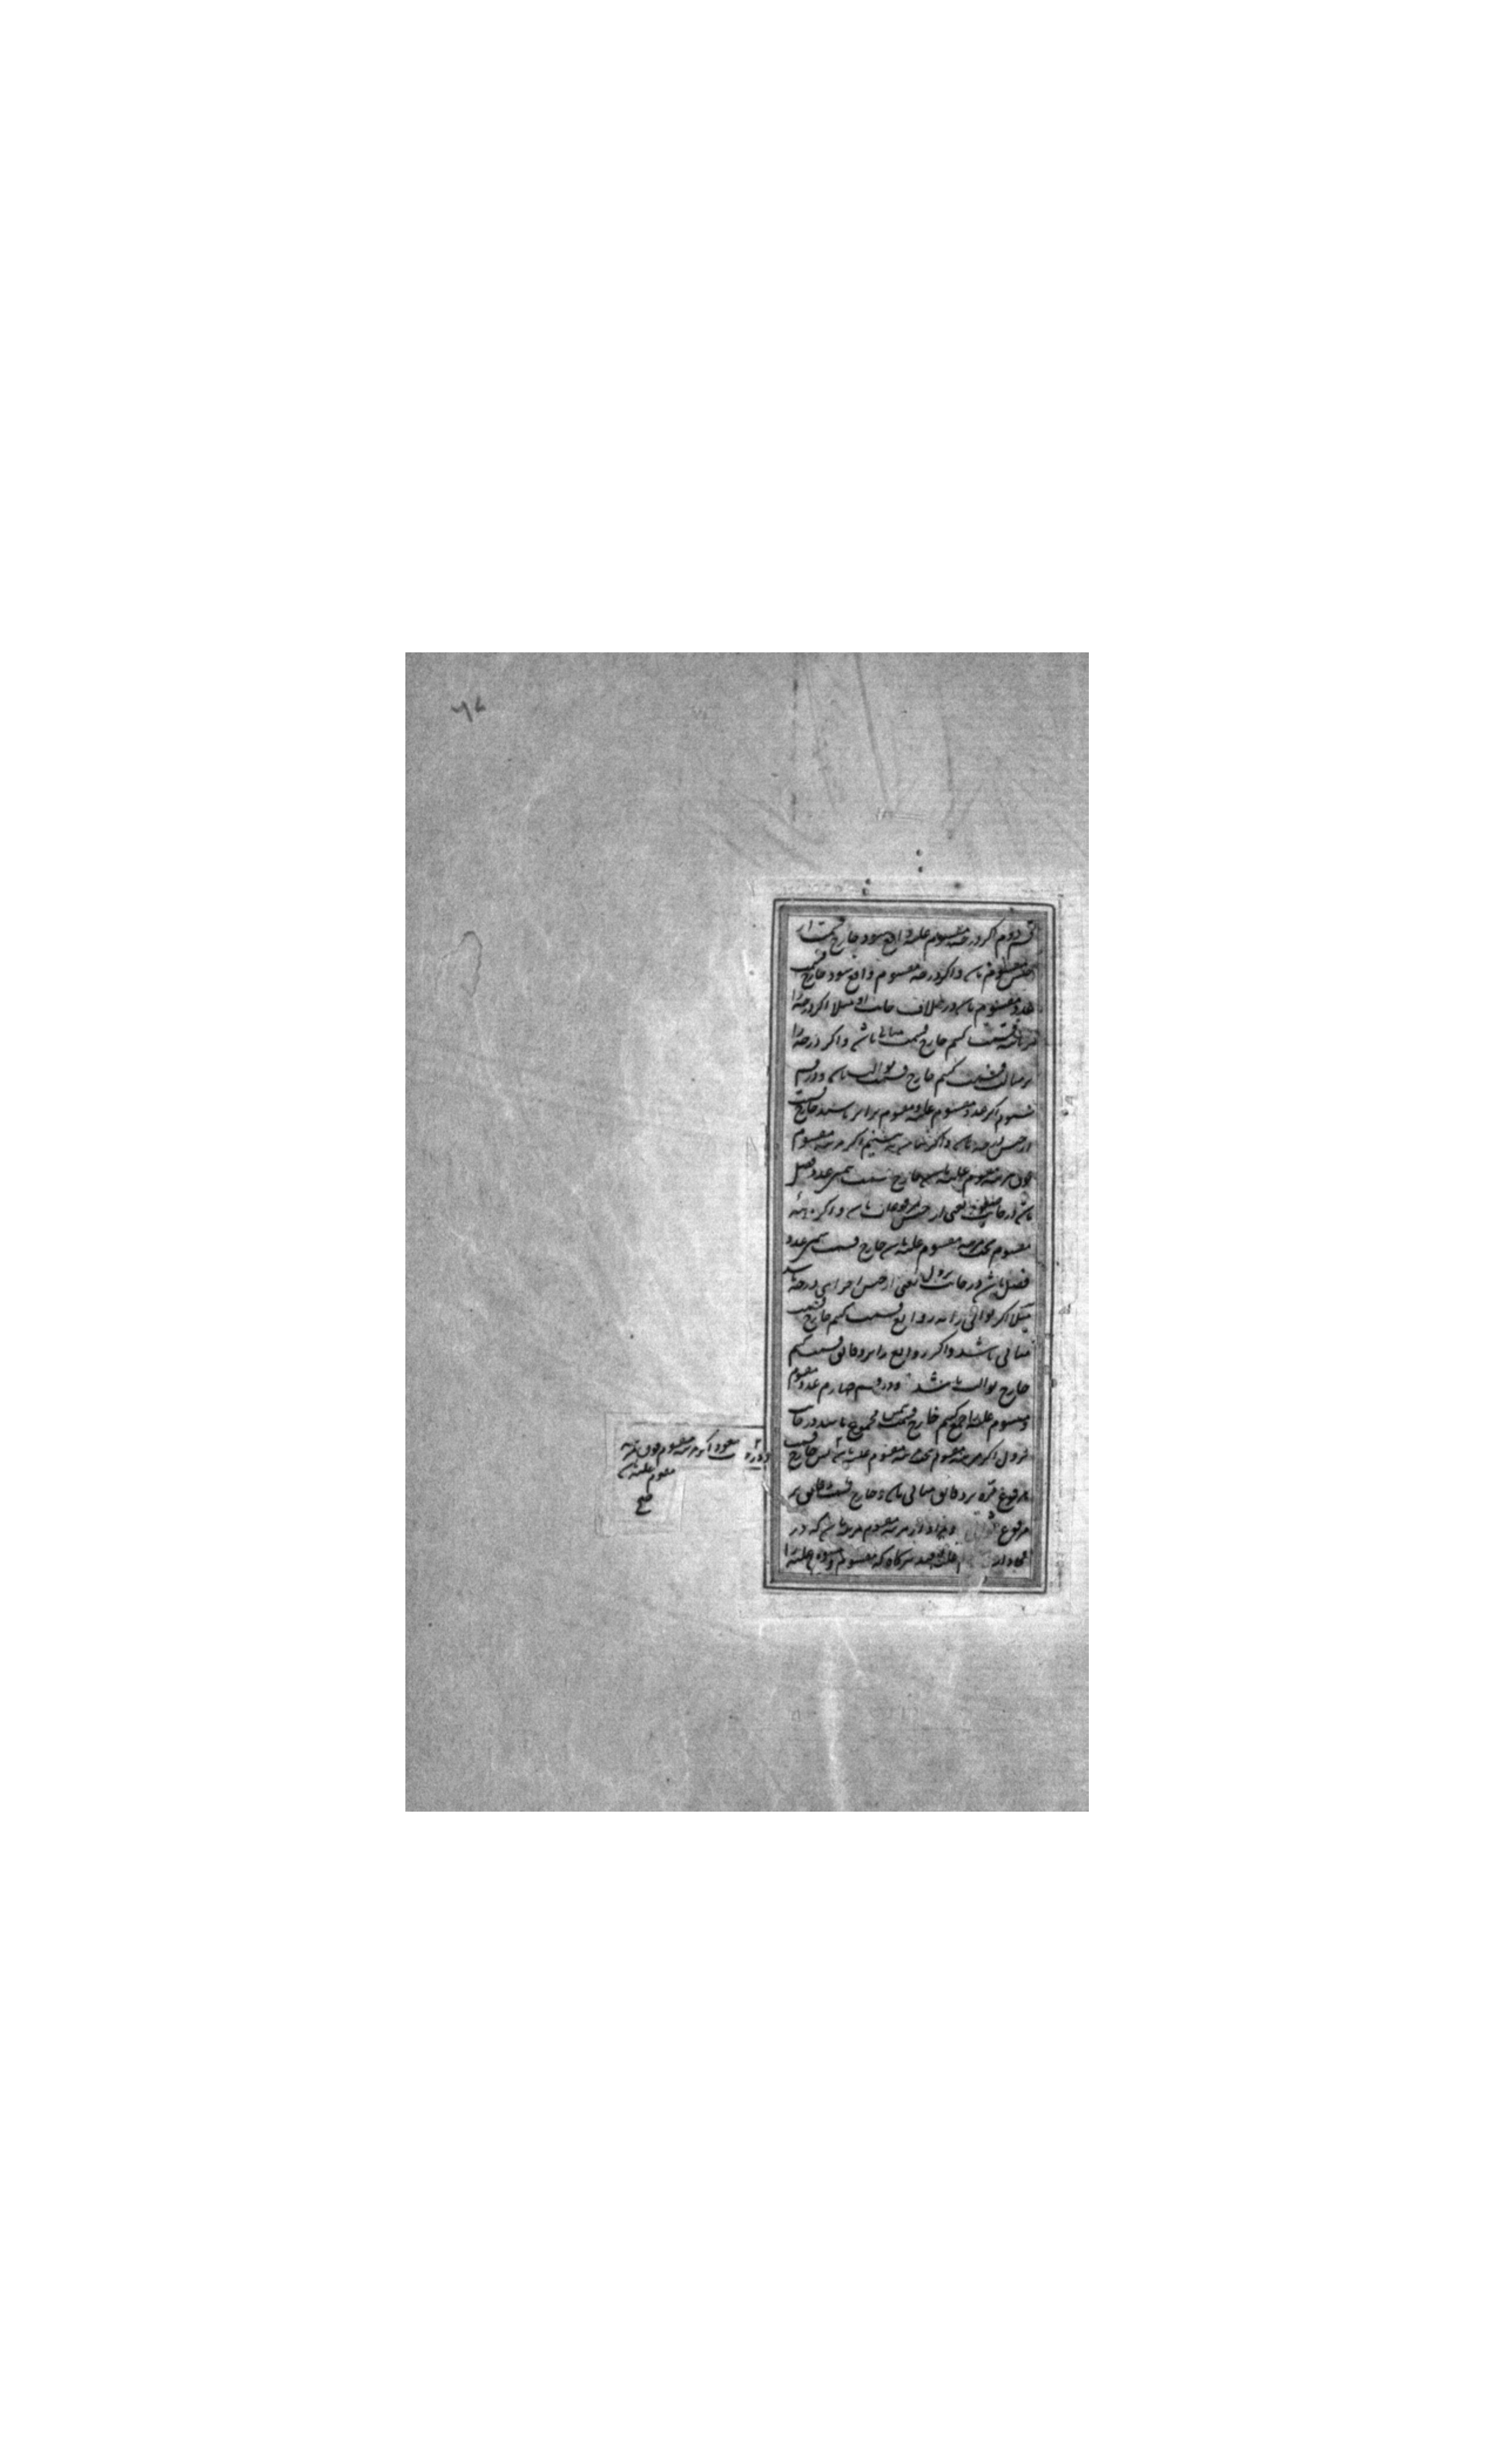 قسم دوم اگر درجه مقسوم علیه واقع شود خارج قسمت از
جنس مقسوم باشد و اگر درجه مقسوم واقع شود خارج قسمت
عدد مقسوم باشد در خلاف جانب او مثلا اگر درجه را
بر ثالثه قسمت کنیم خارج قسمت مثانی باشد و اگر درجه را
بر مثالث قسمت کنیم خارج قسمت ثوالث باشد و در قسم
سوم اگر عدد مقسوم علیه و مقسوم برابر باشند خارج قسمت
از جنس درجه باشد و اگر نه اگر مرتبه مقسوم
فوق مرتبه مقسوم علیه باشد خارج قسمت سمی عدد فضل
باشد در جانب صعود یعنی از جنس مرفوعات باشد و اگر مرتبه
مقسوم تحت مرتبه مقسوم علیه باشد خارج قسمت سمی عدد
فضل باشد در جانب نزول یعنی از جنس اجزای درجه باشد
مثلا اگر ثوانی را بر روابع قسمت کنیم خارج قسمت
مثانی باشد و اگر روابع را بر دقایق قسمت کنیم
خارج ثوالث باشد و در قسم چهارم عدد مقسوم
و مقسوم علیه را جمع کنیم خارج قسمت سمی مجموع باشد در جانب
نزول اگر مرتبه مقسوم تحت مرتبه مقسوم علیه باشد پس خارج قسمت
مرفوع مره بر دقایق مثانی باشد و خارج قسمت دقایق بر
مرفوع ثوانی و مراد از مرتبه مقسوم مرتبه باشد که در
علیه هرگاه که مقسوم و مقسوم علیه را
و در صعود اگر مرتبه مقسوم فوق مرتبه
مقسوم علیه باشد
صح